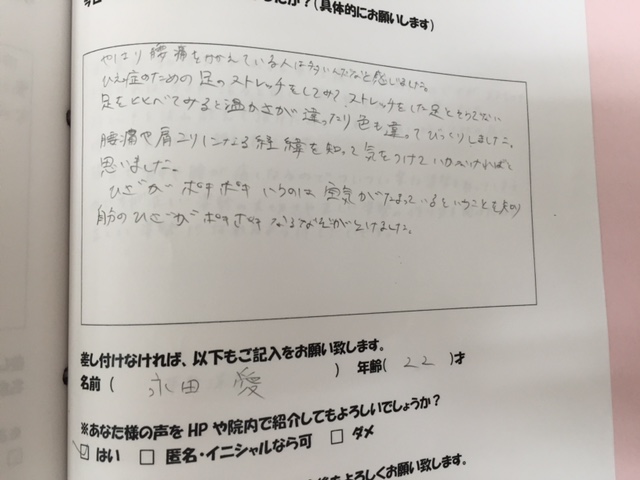 か？(具体的にお願いします)
やはり腰痛をかかえている人は多いんだなと感じました。
ひえ症のための足のストレッチをしてみて、ストレッチをした足とそうでない
足をくらべてみると温かさが違ったり色も違ってびっくりしました。
腰痛や肩コリになる経緯を知って気をつけていかなければと
思いました。
ひざがポキポキいうのは空気がたまっているということも知り
自分のひざがポキポキなるなぞがとけました。
差し付けなければ、以下もご記入をお願い致します。
名前( 永田 愛 ) 年齢( 22 )才
※あなた様の声をHPや院内で紹介してもよろしいでしょうか？
☑ はい □ 匿名・イニシャルなら可 □ ダメ
よろしくお願い致します。